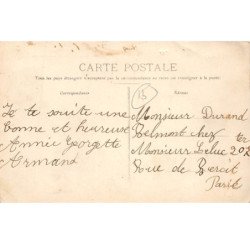 CARTE POSTALE
Tous les pays étrangers n'acceptent pas la correspondance au recto (se renseigner à la poste).
Correspondance
Adresse
15
Je te souite une
bonne et heureuse
Année Georgette
Armand
Monsieur Durand
Belmont chez
Monsieur Leluc 202 ter
Rue de Bercit
Paris